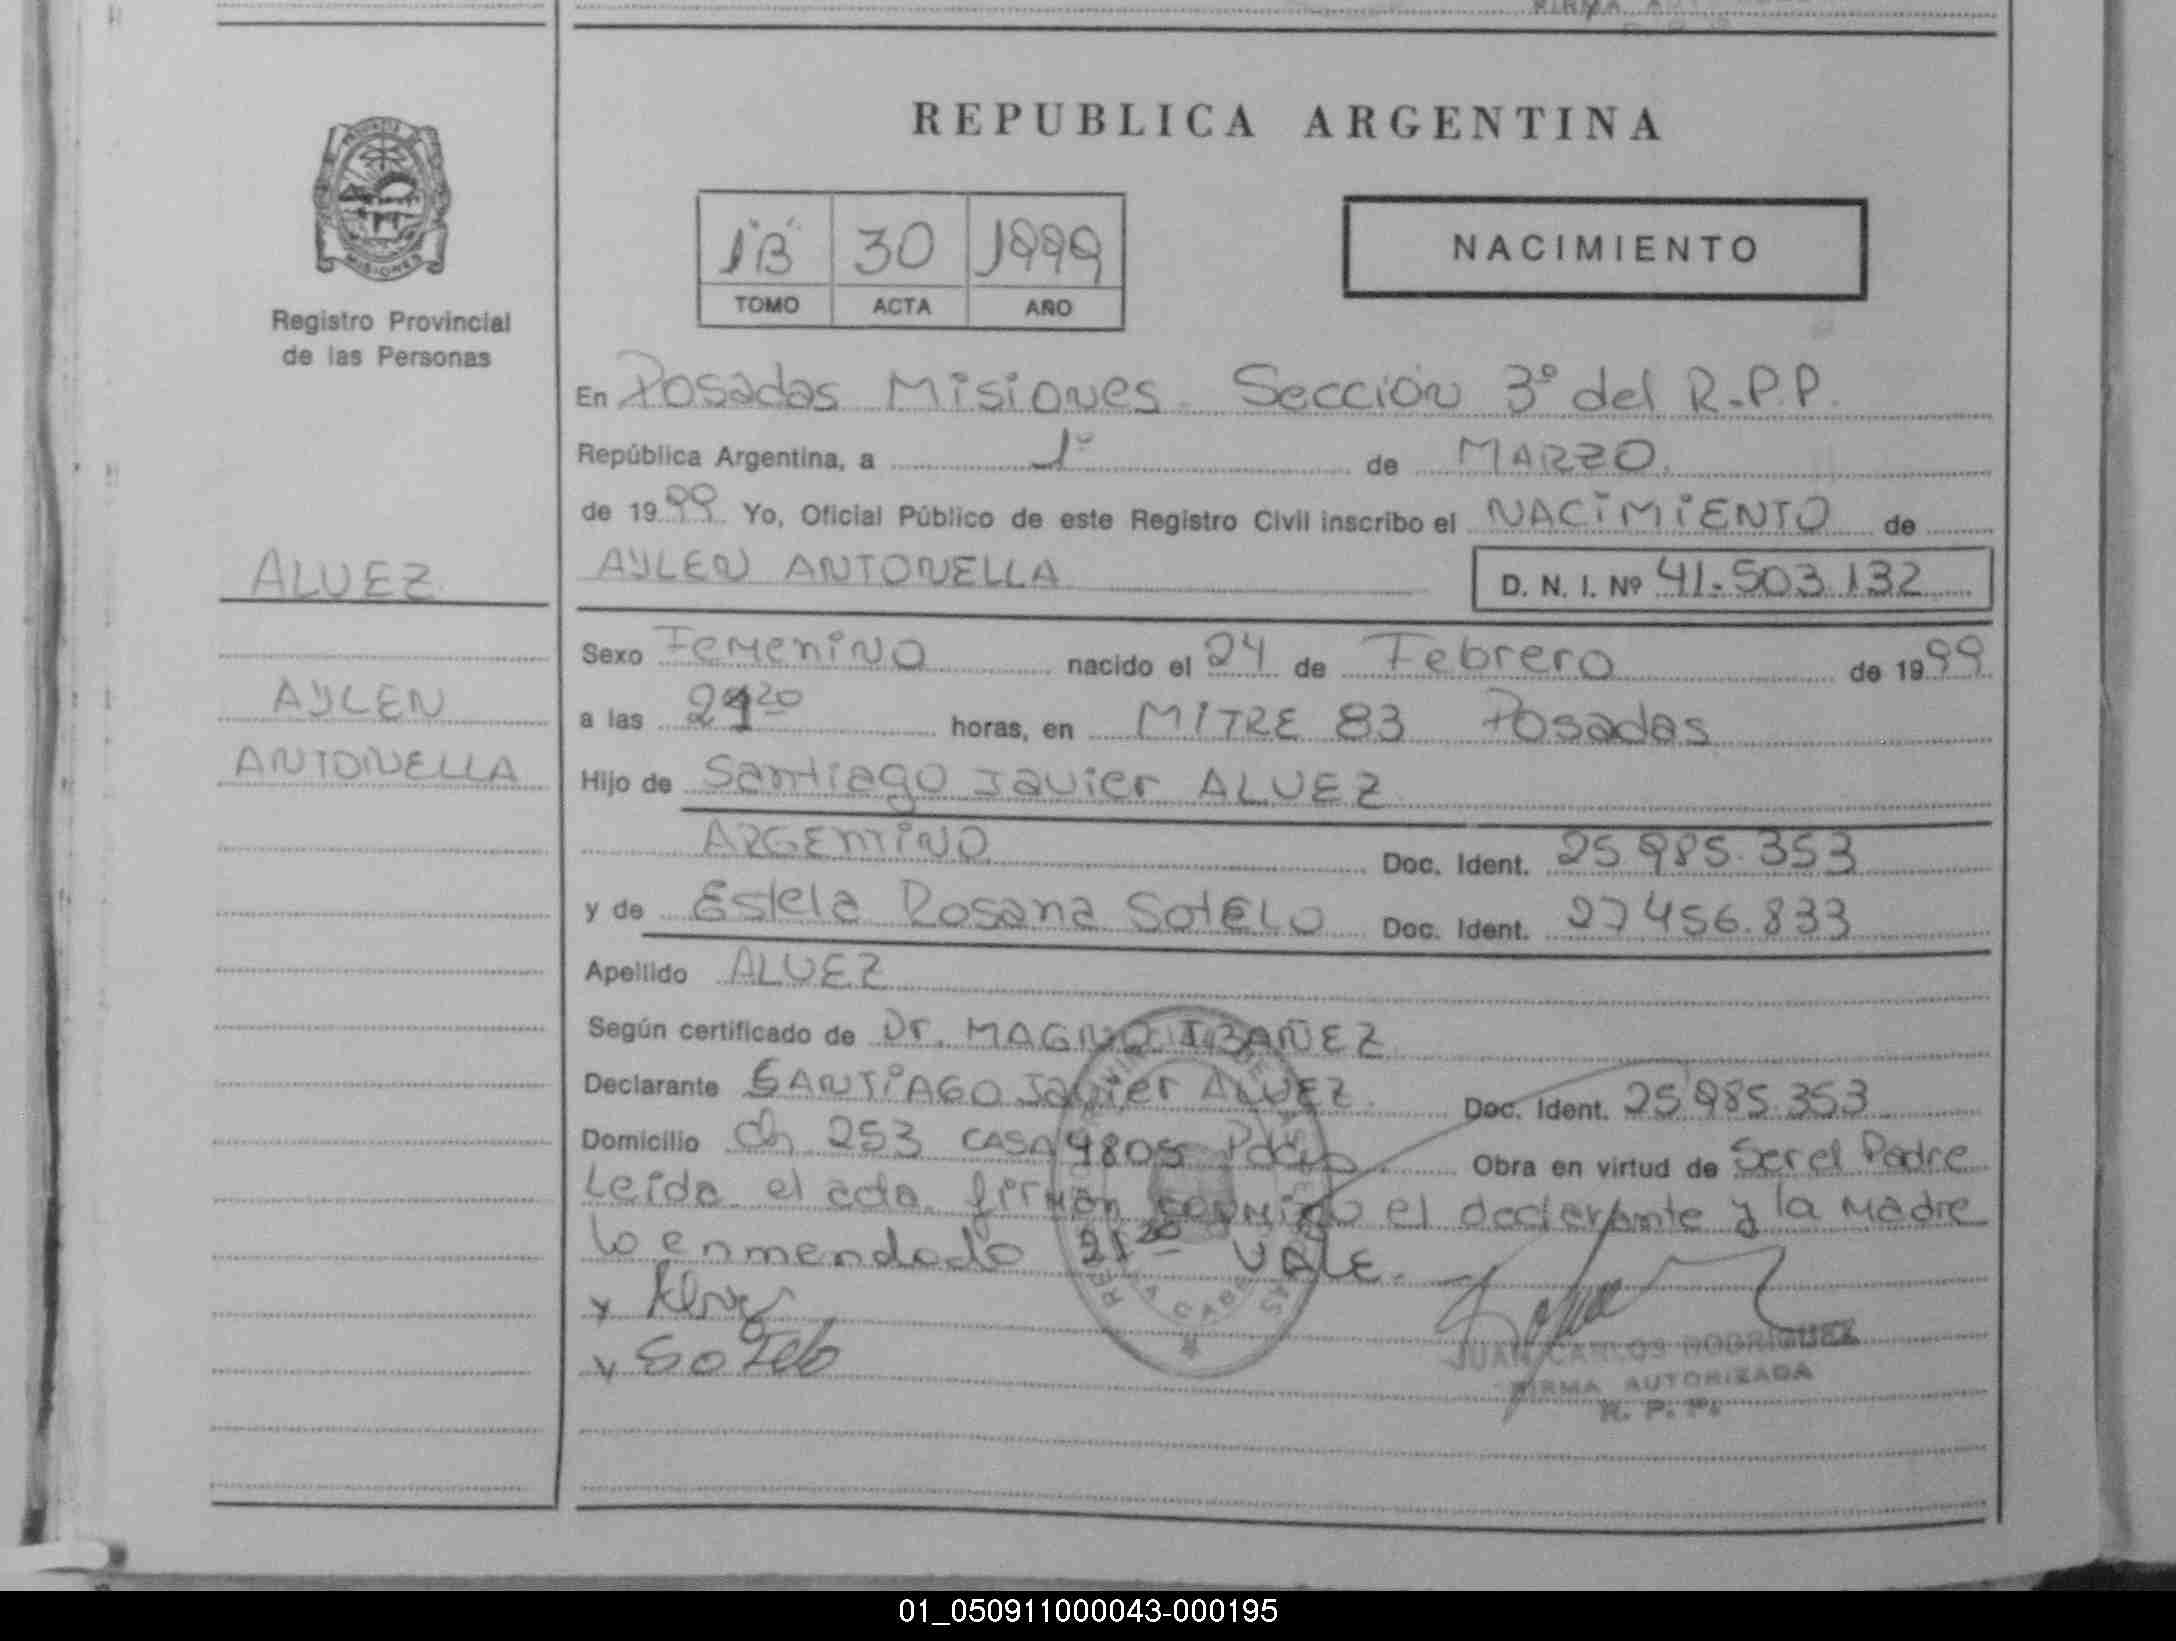 REPUBLICA ARGENTINA
PROVINCIA
MISIONES
Registro Provincial
de las Personas
1"B" 30 1999
TOMO ACTA AÑO
NACIMIENTO
En Posadas Misiones Sección 3º del R.P.P.
República Argentina, a 1º de MARZO.
de 1999 Yo, Oficial Público de este Registro Civil inscribo el NACIMIENTO de
ALVEZ
AYLEN ANTONELLA
D. N. I. Nº 41.503.132
AYLEN
ANTONELLA
Sexo Femenino nacido el 24 de Febrero de 1999
a las 21 20 horas, en MITRE 83 Posadas
Hijo de Santiago Javier ALVEZ
ARGENTINO Doc. Ident. 25.985.353
y de Estela Rosana SOTELO Doc. Ident. 27456.833
Apellido ALVEZ
Según certificado de Dr. MAGNO IBAÑEZ
Declarante SANTIAGO Javier ALVEZ Doc. Ident. 25.985.353
Domicilio Ch 253 CASA 9805 Pdas Obra en virtud de Ser el Padre
Leida el acta firman conmigo el declarante y la Madre
lo enmendado 21 20 VALE.
x Alvez
x Sotelo
JUAN CARLOS RODRIGUEZ
FIRMA AUTORIZADA
R. P. P.
01_050911000043-000195